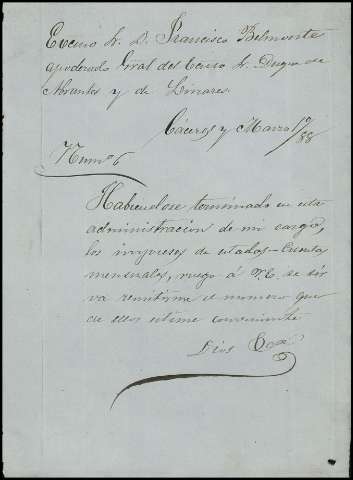 Excmo Sr. D. Francisco Belmonte
apoderado Gral del Excmo Sr. Duque de
Abrantes y de Linares.
Cáceres y Marzo 19/88
Num.o 6
Habiendose terminado en esta
administracion de mi cargo,
los impresos de estados-Cuenta
mensuales, ruego á V.E. se sir
va remitirme el numero que
de ellos estime conveniente
Dios